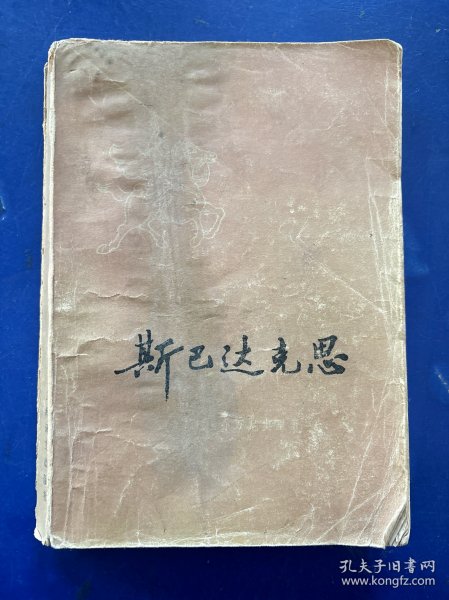 斯巴达克思
孔夫子旧书网
www.kongfz.com